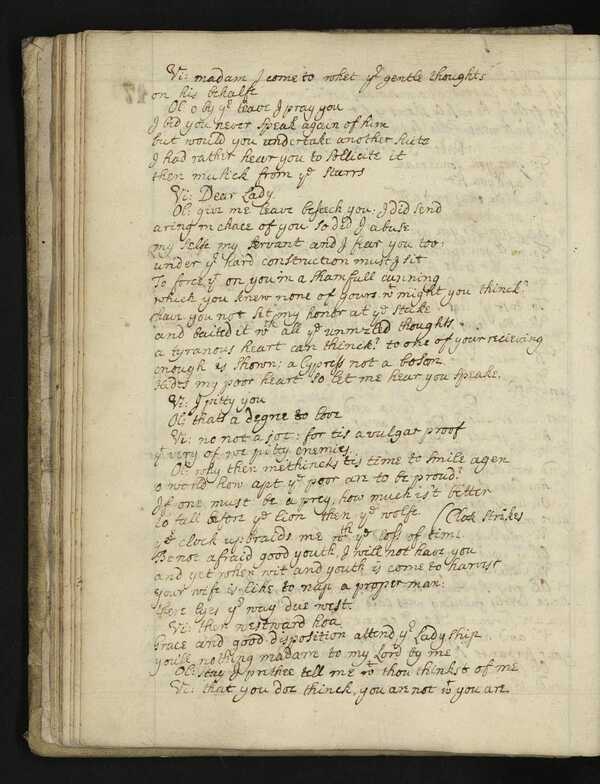 Vi: madam I come to whet yr gentle thoughts
on his behalfe
Ol: o by yr leave I pray you
I bid you never speak again of him
but would you undertake another suite
I had rather hear you to sollicite it
then musick from ye starrs
Vi: Dear Lady
Ol: give me leave beseech you: I did send
a ring in chace of you so did I abuse
my selfe my servant and I fear you too:
under yr hard construction must I sit
To force yt on you in a shamfull cunning
which you knew none of yours. wt might you thinck?
have you not set my honor at ye stake
and baited it wth all ye unmuzled thoughts
a tyranous heart can thinck? to one of your recieving
enough is shown: a Cypress not a bosom
hides my poor heart so let me hear you speake.
Vi: I pitty you
Ol: thats a degree to love
Vi: no not a jot: for tis a vulgar proof
yt very oft we pitty enemies
Ol: why then methincks tis time to smile agen
o world how apt ye poor are to be proud?
If one must be a prey, how much is't better
to fall before ye lion then ye wolfe (Clok strikes
ye clock upbraids me wth ye loss of time
Be not afraid good youth, I will not have you
and yet when wit and youth is come to harvist
your wife is like to reap a proper man:
there lyes yr way due west.
Vi: then westward hoa
Grace and good disposition attend yr Ladyship
youle nothing madame to my Lord by me
Ol: stay I prithee tell me wt thou thinkst of me
Vi: that you doe thinck, you are not wt you are